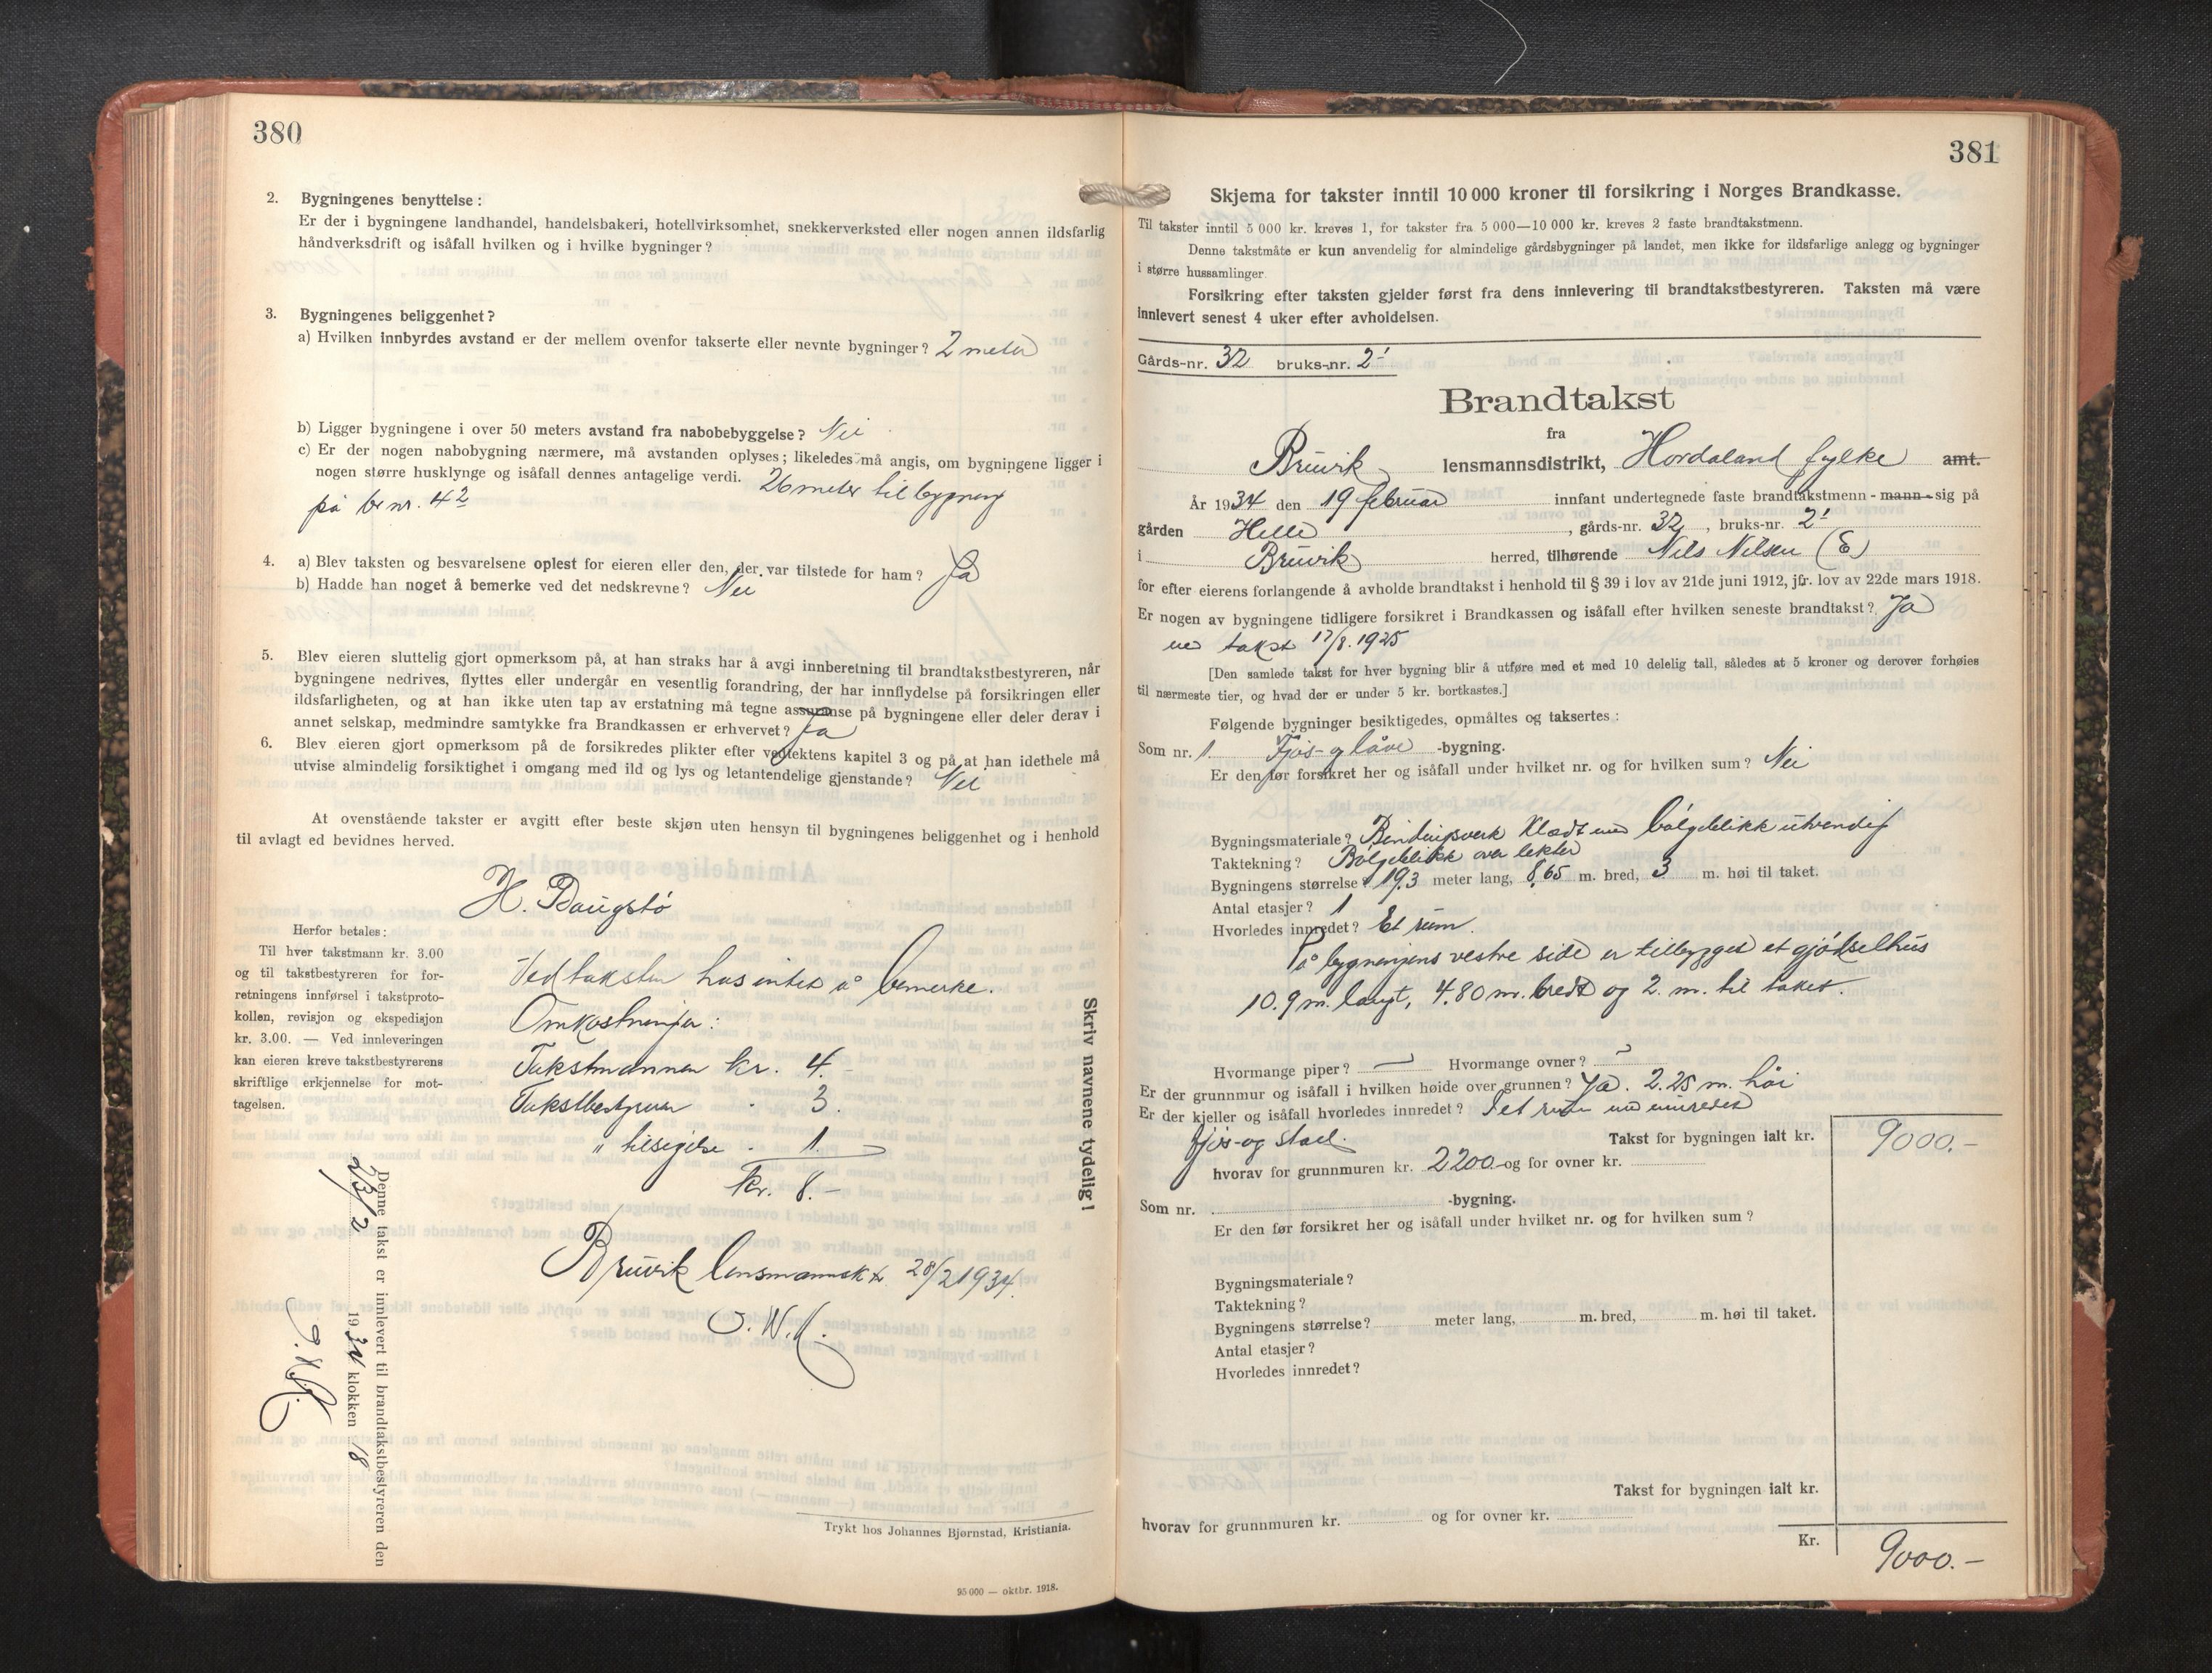 380
2. Bygningenes benyttelse :
Er der i bygningene landhandel, handelsbakeri, hotellvirksomhet, snekkerverksted eller nogen annen ildsfarlig
håndverksdrift og isåfall hvilken og i hvilke bygninger ?
3. Bygningenes beliggenhet ?
a) Hvilken innbyrdes avstand er der mellem ovenfor takserte eller nevnte bygninger ? 2 meter
b) Ligger bygningene i over 50 meters avstand fra nabobebyggelse ? Nei
c) Er der nogen nabobygning nærmere, må avstanden oplyses ; likeledes må angis, om bygningene ligger i
nogen større husklynge og isåfall dennes antagelige verdi. 26 meter til bygning
på br nr. 4²
4. a) Blev taksten og besvarelsene oplest for eieren eller den, der var tilstede for ham ? Ja
b) Hadde han noget å bemerke ved det nedskrevne ? Nei
5. Blev eieren sluttelig gjort opmerksom på, at han straks har å avgi innberetning til brandtakstbestyreren, når
bygningene nedrives, flyttes eller undergår en vesentlig forandring, der har innflydelse på forsikringen eller
ildsfarligheten, og at han ikke uten tap av erstatning må tegne assuranse på bygningene eller deler derav i
annet selskap, medmindre samtykke fra Brandkassen er erhvervet ? Ja
6. Blev eieren gjort opmerksom på de forsikredes plikter efter vedtektens kapitel 3 og på at han idethele må
utvise almindelig forsiktighet i omgang med ild og lys og letantendelige gjenstande ? Nei
At ovenstående takster er avgitt efter beste skjøn uten hensyn til bygningenes beliggenhet og i henhold
til avlagt ed bevidnes herved.
H. Daugstø
Herfor betales :
Til hver takstmann kr. 3.00
og til takstbestyreren for for-
retningens innførsel i takstproto-
kollen, revisjon og ekspedisjon
kr. 3.00. — Ved innleveringen
kan eieren kreve takstbestyrerens
skriftlige erkjennelse for mot-
tagelsen.
Ved taksten has intet å bemerke.
Omkostninger :
Takstmannen kr. 4.-
Takstbestyrer - 3.
" tilsigelse - 1.
Kr. 8.-
Bruvik lensmannsk 28/2 1934.
O. W. K.
Skriv navnene tydelig !
Denne takst er innlevert til brandtakstbestyreren den
23/2 1934 klokken 18
Trykt hos Johannes Bjørnstad, Kristiania.
95 000 — oktbr. 1918.
381
Skjema for takster inntil 10 000 kroner til forsikring i Norges Brandkasse.
Til takster inntil 5 000 kr. kreves 1, for takster fra 5 000—10 000 kr. kreves 2 faste brandtakstmenn.
Denne takstmåte er kun anvendelig for almindelige gårdsbygninger på landet, men ikke for ildsfarlige anlegg og bygninger
i større hussamlinger.
Forsikring efter taksten gjelder først fra dens innlevering til brandtakstbestyreren. Taksten må være
innlevert senest 4 uker efter avholdelsen.
Gårds-nr. 32 bruks-nr. 2¹
Brandtakst
fra
Bruvik lensmannsdistrikt, Hordaland fylke amt.
År 1934 den 19 februar innfant undertegnede faste brandtakstmenn - mann - sig på
gården Helle, gårds-nr. 32, bruks-nr. 2¹
i Bruvik herred, tilhørende Nils Nilsen (E)
for efter eierens forlangende å avholde brandtakst i henhold til § 39 i lov av 21de juni 1912, jfr. lov av 22de mars 1918.
Er nogen av bygningene tidligere forsikret i Brandkassen og isåfall efter hvilken seneste brandtakst ? Ja
ved takst 17/8. 1925
[Den samlede takst for hver bygning blir å utføre med et med 10 delelig tall, således at 5 kroner og derover forhøies
til nærmeste tier, og hvad der er under 5 kr. bortkastes.]
Følgende bygninger besiktigedes, opmåltes og taksertes :
Som nr. 1. Fjøs- og låve -bygning.
Er den før forsikret her og isåfall under hvilket nr. og for hvilken sum ? Nei
Bygningsmateriale ? Bindingsverk klædt med bølgeblikk utvendig
Taktekning ? Bølgeblikk over lekter
Bygningens størrelse ? 19,3 meter lang, 8,65 m. bred, 3 m. høi til taket.
Antal etasjer ? 1
Hvorledes innredet ? Et rum.
På bygningens vestre side er tilbygget et gjødselhus
10.9 m. langt, 4.80 m. bredt og 2. m. til taket.
Hvormange piper ? — Hvormange ovner ? —
Er der grunnmur og isåfall i hvilken høide over grunnen ? Ja. 2.25 m. høi
Er der kjeller og isåfall hvorledes innredet ? I et rum med innredet
fjøs- og stall.
Takst for bygningen ialt kr. 9000.-
hvorav for grunnmuren kr. 2200- og for ovner kr.
Som nr. -bygning.
Er den før forsikret her og isåfall under hvilket nr. og for hvilken sum ?
Bygningsmateriale ?
Taktekning ?
Bygningens størrelse ? meter lang, m. bred, m. høi til taket.
Antal etasjer ?
Hvorledes innredet ?
Takst for bygningen ialt kr.
hvorav for grunnmuren kr. og for ovner kr.
Kr. 9000.-